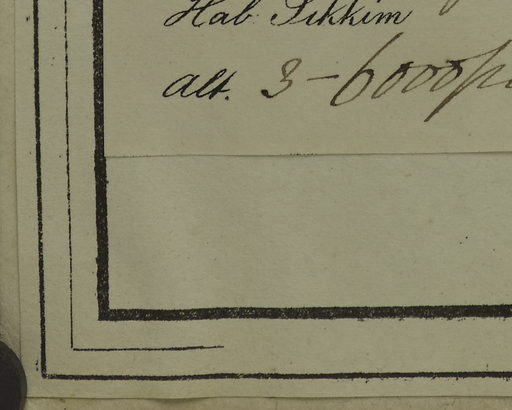 Hab Sikkim
Alt. 3-6000